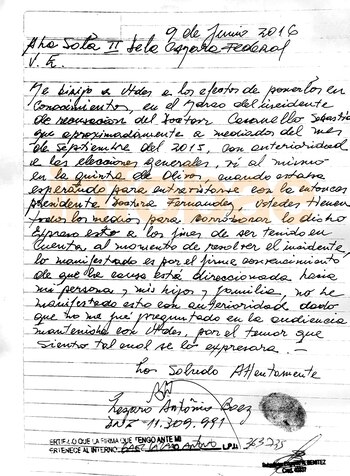 9 de Junio 2016
A la Sala II de la Camara Federal
V.E.
Me dirijo a Uddes a los efectos de ponerlos en
conocimiento, en el marco del incidente
de recusacion del Doctor Casanello Sebastia
que aproximadamente a mediados del mes
de Septiembre del 2015, con anterioridad
a las elecciones generales, vi al mismo
en la quinta de olivos, cuando estaba
esperando para entrevistarme con la entonces
presidenta Doctora Fernandez, Ustedes tienen
todos los medios para corroborar lo dicho
Expreso esto a los fines de ser tenido en
cuenta al momento de resolver el incidente,
lo manifestado es por el firme convencimiento
de que la causa está direccionada hacia
mi persona, mis hijos y familia, no he
manifestado esto con anterioridad dado
que no me fué preguntado en la audiencia
mantenida con Uddes, por el temor que
siento tal cual se lo expresara. -
Los Saludo Attentamente
Lazaro Antônio Baez
DNI 11.309.991
CERTIFICO QUE LA FIRMA QUE TENGO ANTE MI
PERTENECE AL INTERNO BAEZ Lazaro Antonio L.P.U
BENITEZ